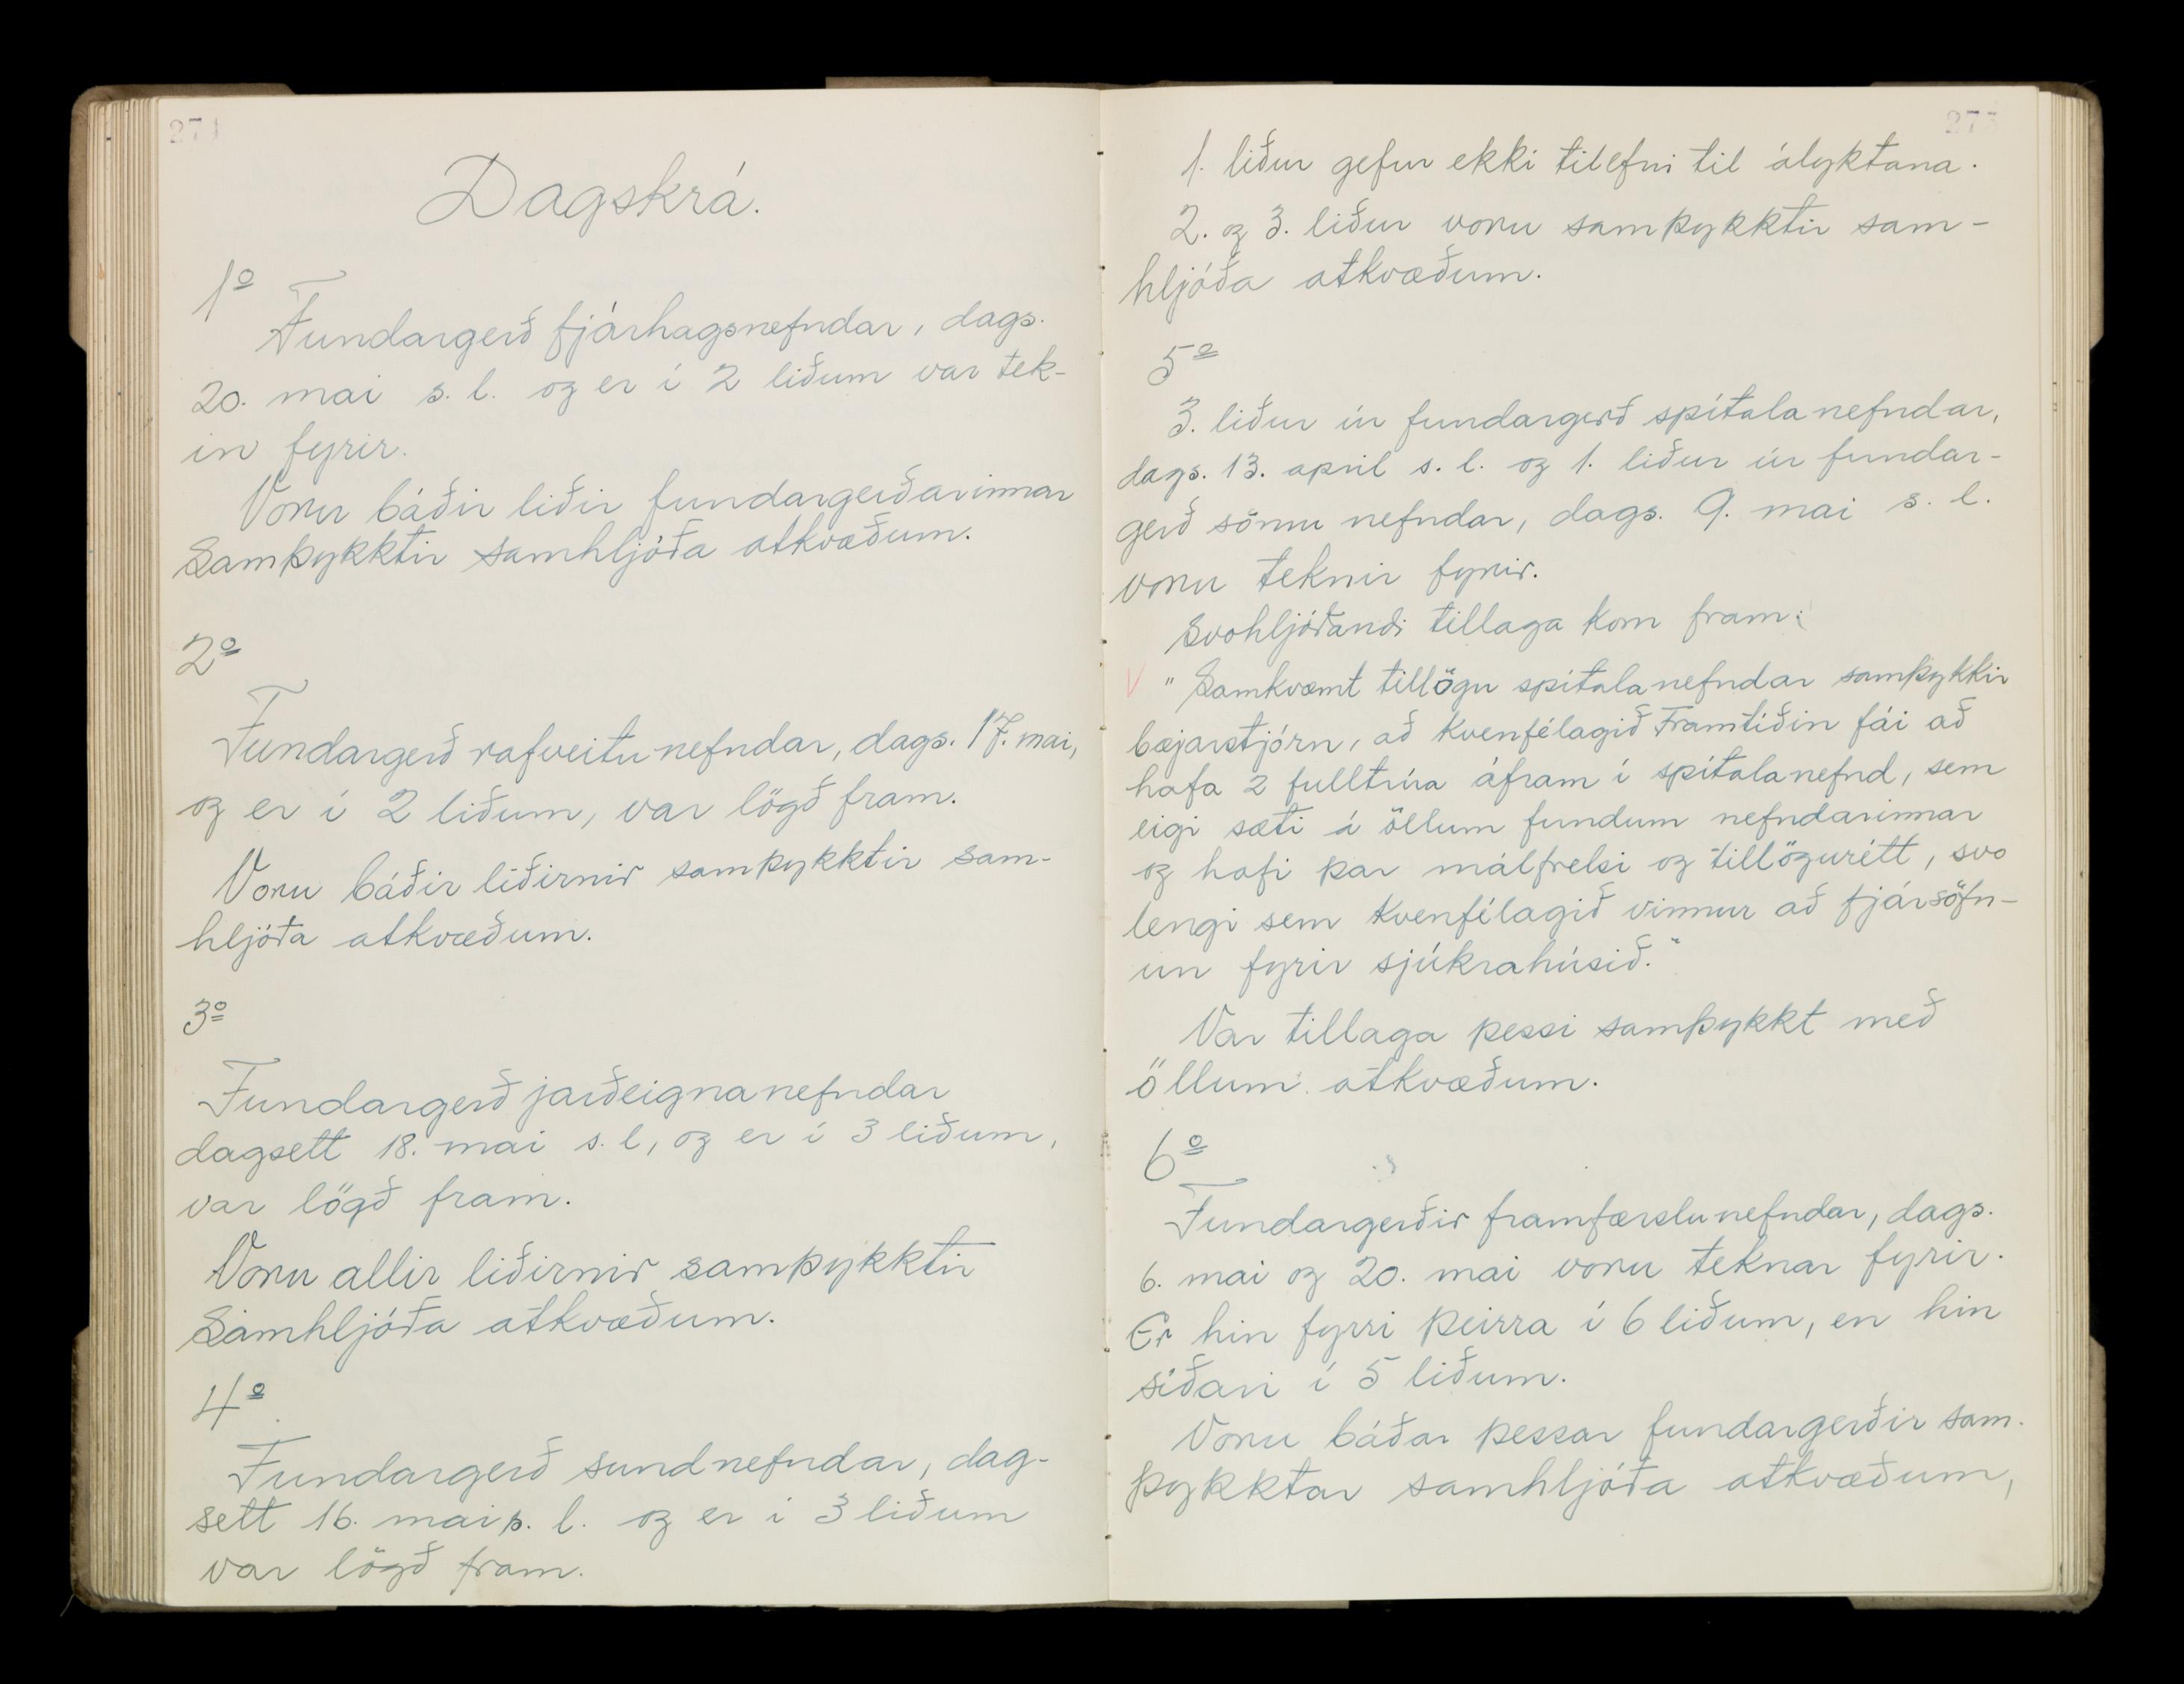 Dagskrá.
1º
Fundargerð fjárhagsnefndar, dags.
20. mai s. l. og er í 2 liðum var tek-
in fyrir.
Voru báðir liðir fundargerðarinnar
Samþykktir samhljóða atkvæðum.
2º
Fundargerð rafveitunefndar, dags. 17. mai,
og er í 2 liðum, var lögð fram.
Voru báðir liðirnir samþykktir sam-
hljóða atkvæðum.
3º
Fundargerð jarðeignanefndar
dagsett 18. mai s. l, og er í 3 liðum,
var lögð fram.
Voru allir liðirnir samþykktir
Samhljóða atkvæðum.
4º
Fundargerð sundnefndar, dag-
sett 16. mai s. l. og er í 3 liðum
var lögð fram.
1. liður gefur ekki tilefni til ályktana.
2. og 3. liður voru samþykktir sam-
hljóða atkvæðum.
5º
3. liður úr fundargerð spítalanefndar,
dags. 13. april s. l. og 1. liður úr fundar-
gerð sömu nefndar, dags. 9. mai s. l.
voru teknir fyrir.
Svohljóðandi tillaga kom fram:
" Samkvæmt tillögu spítalanefndar samþykkir
bæjarstjórn, að Kvenfélagið Framtíðin fái að
hafa 2 fulltrúa áfram í spítalanefnd, sem
eigi sæti á öllum fundum nefndarinnar
og hafi þar málfrelsi og tillögurétt, svo
lengi sem Kvenfélagið vinnur að fjársöfn-
un fyrir sjúkrahúsið."
Var tillaga þessi samþykkt með
öllum atkvæðum.
6º
Fundargerðir framfærslunefndar, dags.
6. mai og 20. mai voru teknar fyrir.
Er hin fyrri þeirra í 6 liðum, en hin
síðari í 5 liðum.
Voru báðar þessar fundargerðir sam-
þykktar samhljóða atkvæðum,